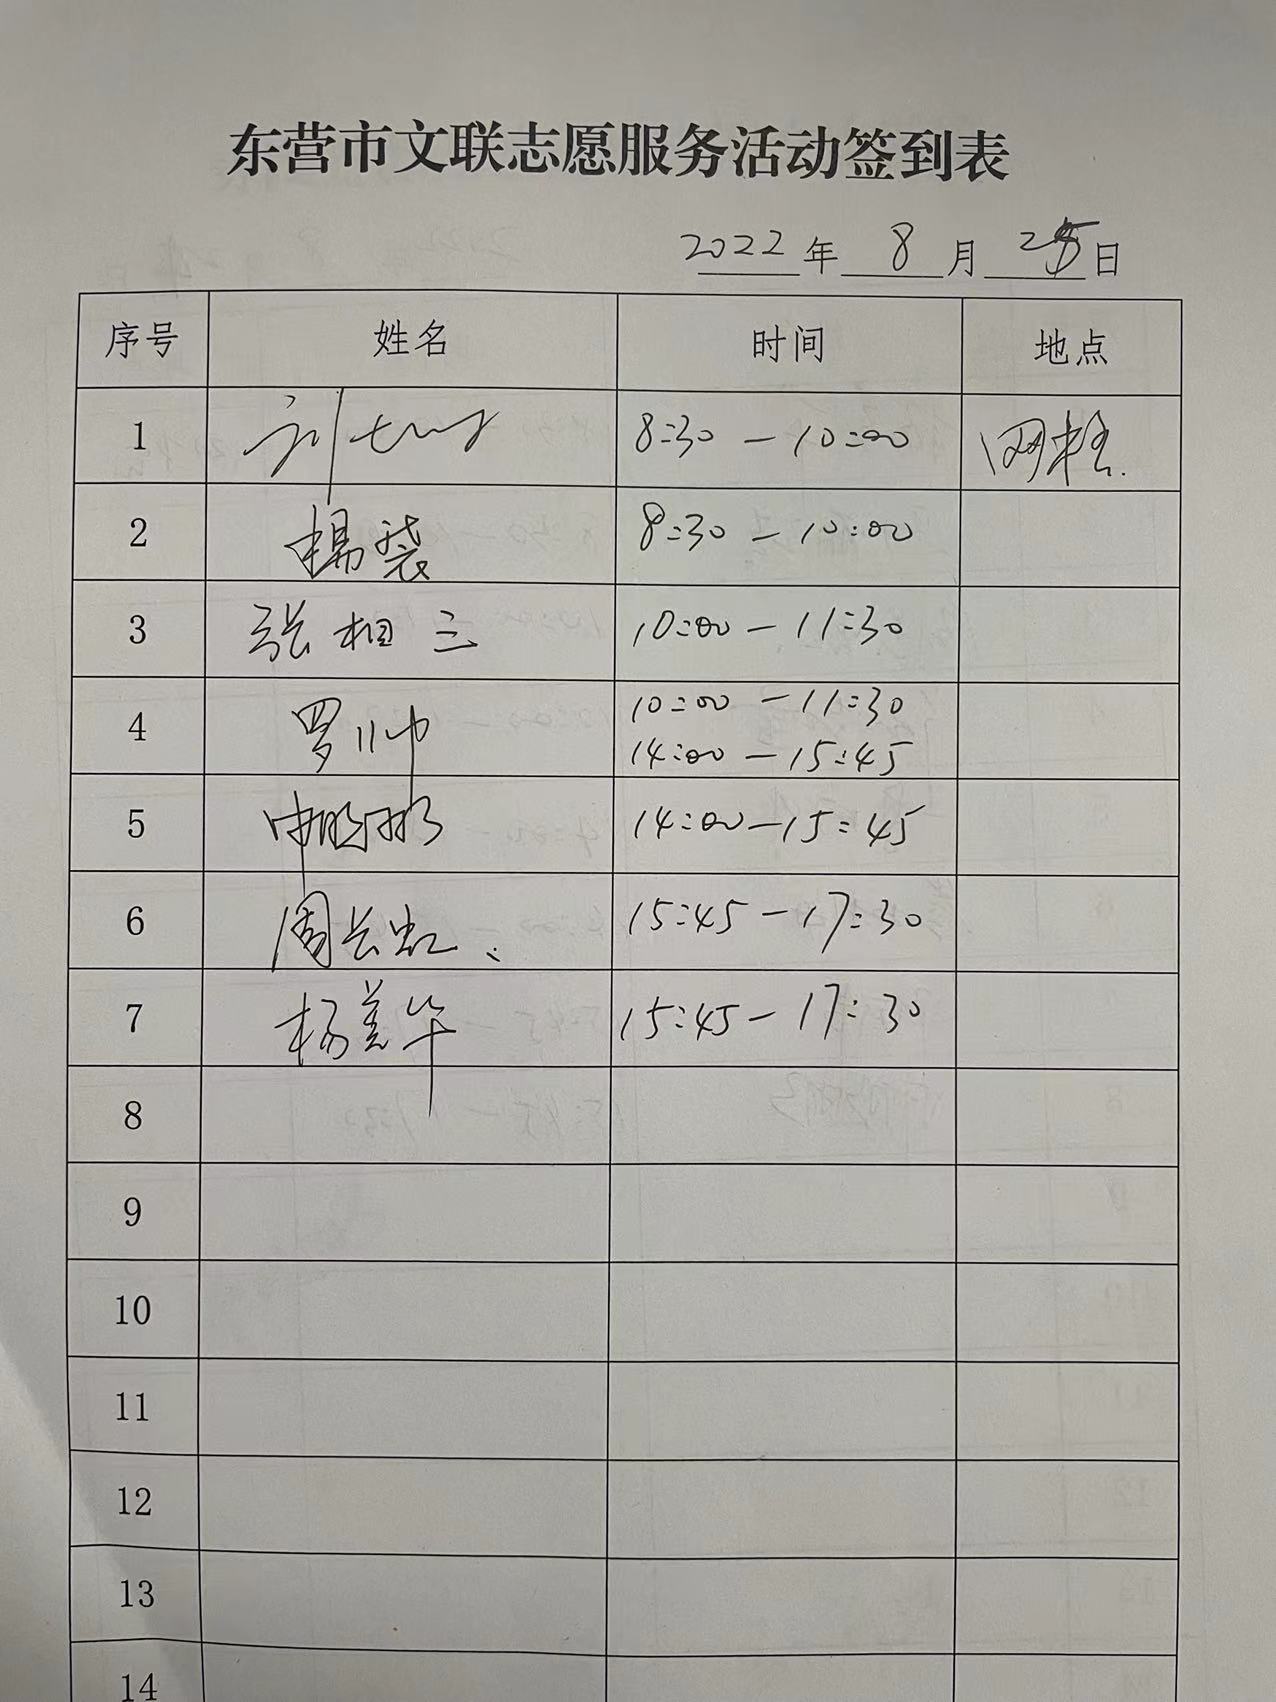 东营市文联志愿服务活动签到表
2022年 8月 25日
序号 姓名 时间 地点
1 刘 8:30 — 10:00 网格
2 杨袋 8:30 — 10:00
3 张相三 10:00 — 11:30
4 罗帅 10:00 — 11:30
14:00 — 15:45
5 14:00 — 15:45
6 周长虹、 15:45 — 17:30
7 杨美华 15:45 — 17:30
8
9
10
11
12
13
14